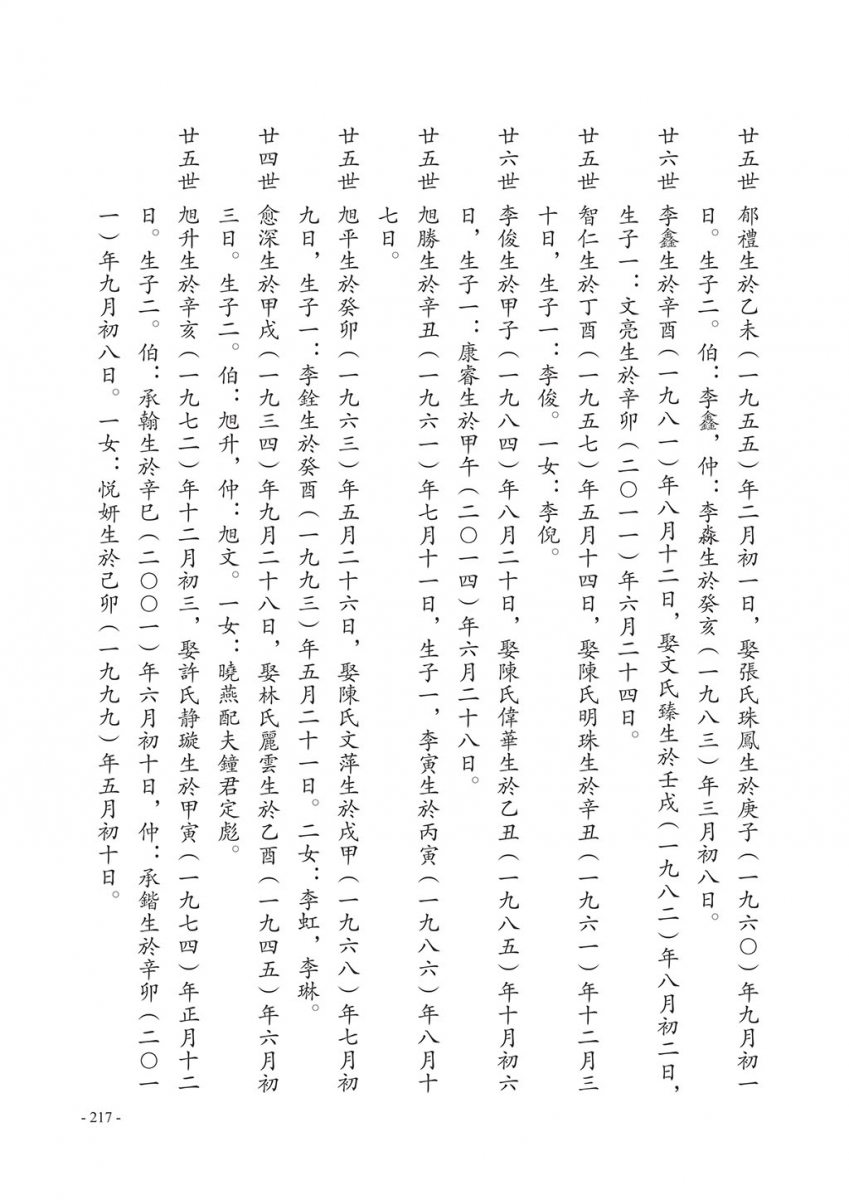 廿五世 郁禮生於乙未(一九五五)年二月初一日，娶張氏珠鳳生於庚子(一九六〇)年九月初一
日。生子二。伯：李鑫，仲：李淼生於癸亥(一九八三)年三月初八日。
廿六世 李鑫生於辛酉(一九八一)年八月十二日，娶文氏臻生於壬戌(一九八二)年八月初二日，
生子一：文亮生於辛卯(二〇一一)年六月二十四日。
廿五世 智仁生於丁酉(一九五七)年五月十四日，娶陳氏明珠生於辛丑(一九六一)年十二月三
十日，生子一：李俊。一女：李倪。
廿六世 李俊生於甲子(一九八四)年八月二十日，娶陳氏偉華生於乙丑(一九八五)年十月初六
日，生子一：康睿生於甲午(二〇一四)年六月二十八日。
廿五世 旭勝生於辛丑(一九六一)年七月十一日，生子一，李寅生於丙寅(一九八六)年八月十
七日。
廿五世 旭平生於癸卯(一九六三)年五月二十六日，娶陳氏文萍生於戌甲(一九六八)年七月初
九日，生子一：李銓生於癸酉(一九九三)年五月二十一日。二女：李虹，李琳。
廿四世 愈深生於甲戌(一九三四)年九月二十八日，娶林氏麗雲生於乙酉(一九四五)年六月初
三日。生子二。伯：旭升，仲：旭文。一女：曉燕配夫鐘君定彪。
廿五世 旭升生於辛亥(一九七二)年十二月初三，娶許氏静璇生於甲寅(一九七四)年正月十二
日。生子二。伯：承翰生於辛巳(二〇〇一)年六月初十日，仲：承鍇生於辛卯(二〇一
一)年九月初八日。一女：悦妍生於己卯(一九九九)年五月初十日。
- 217 -